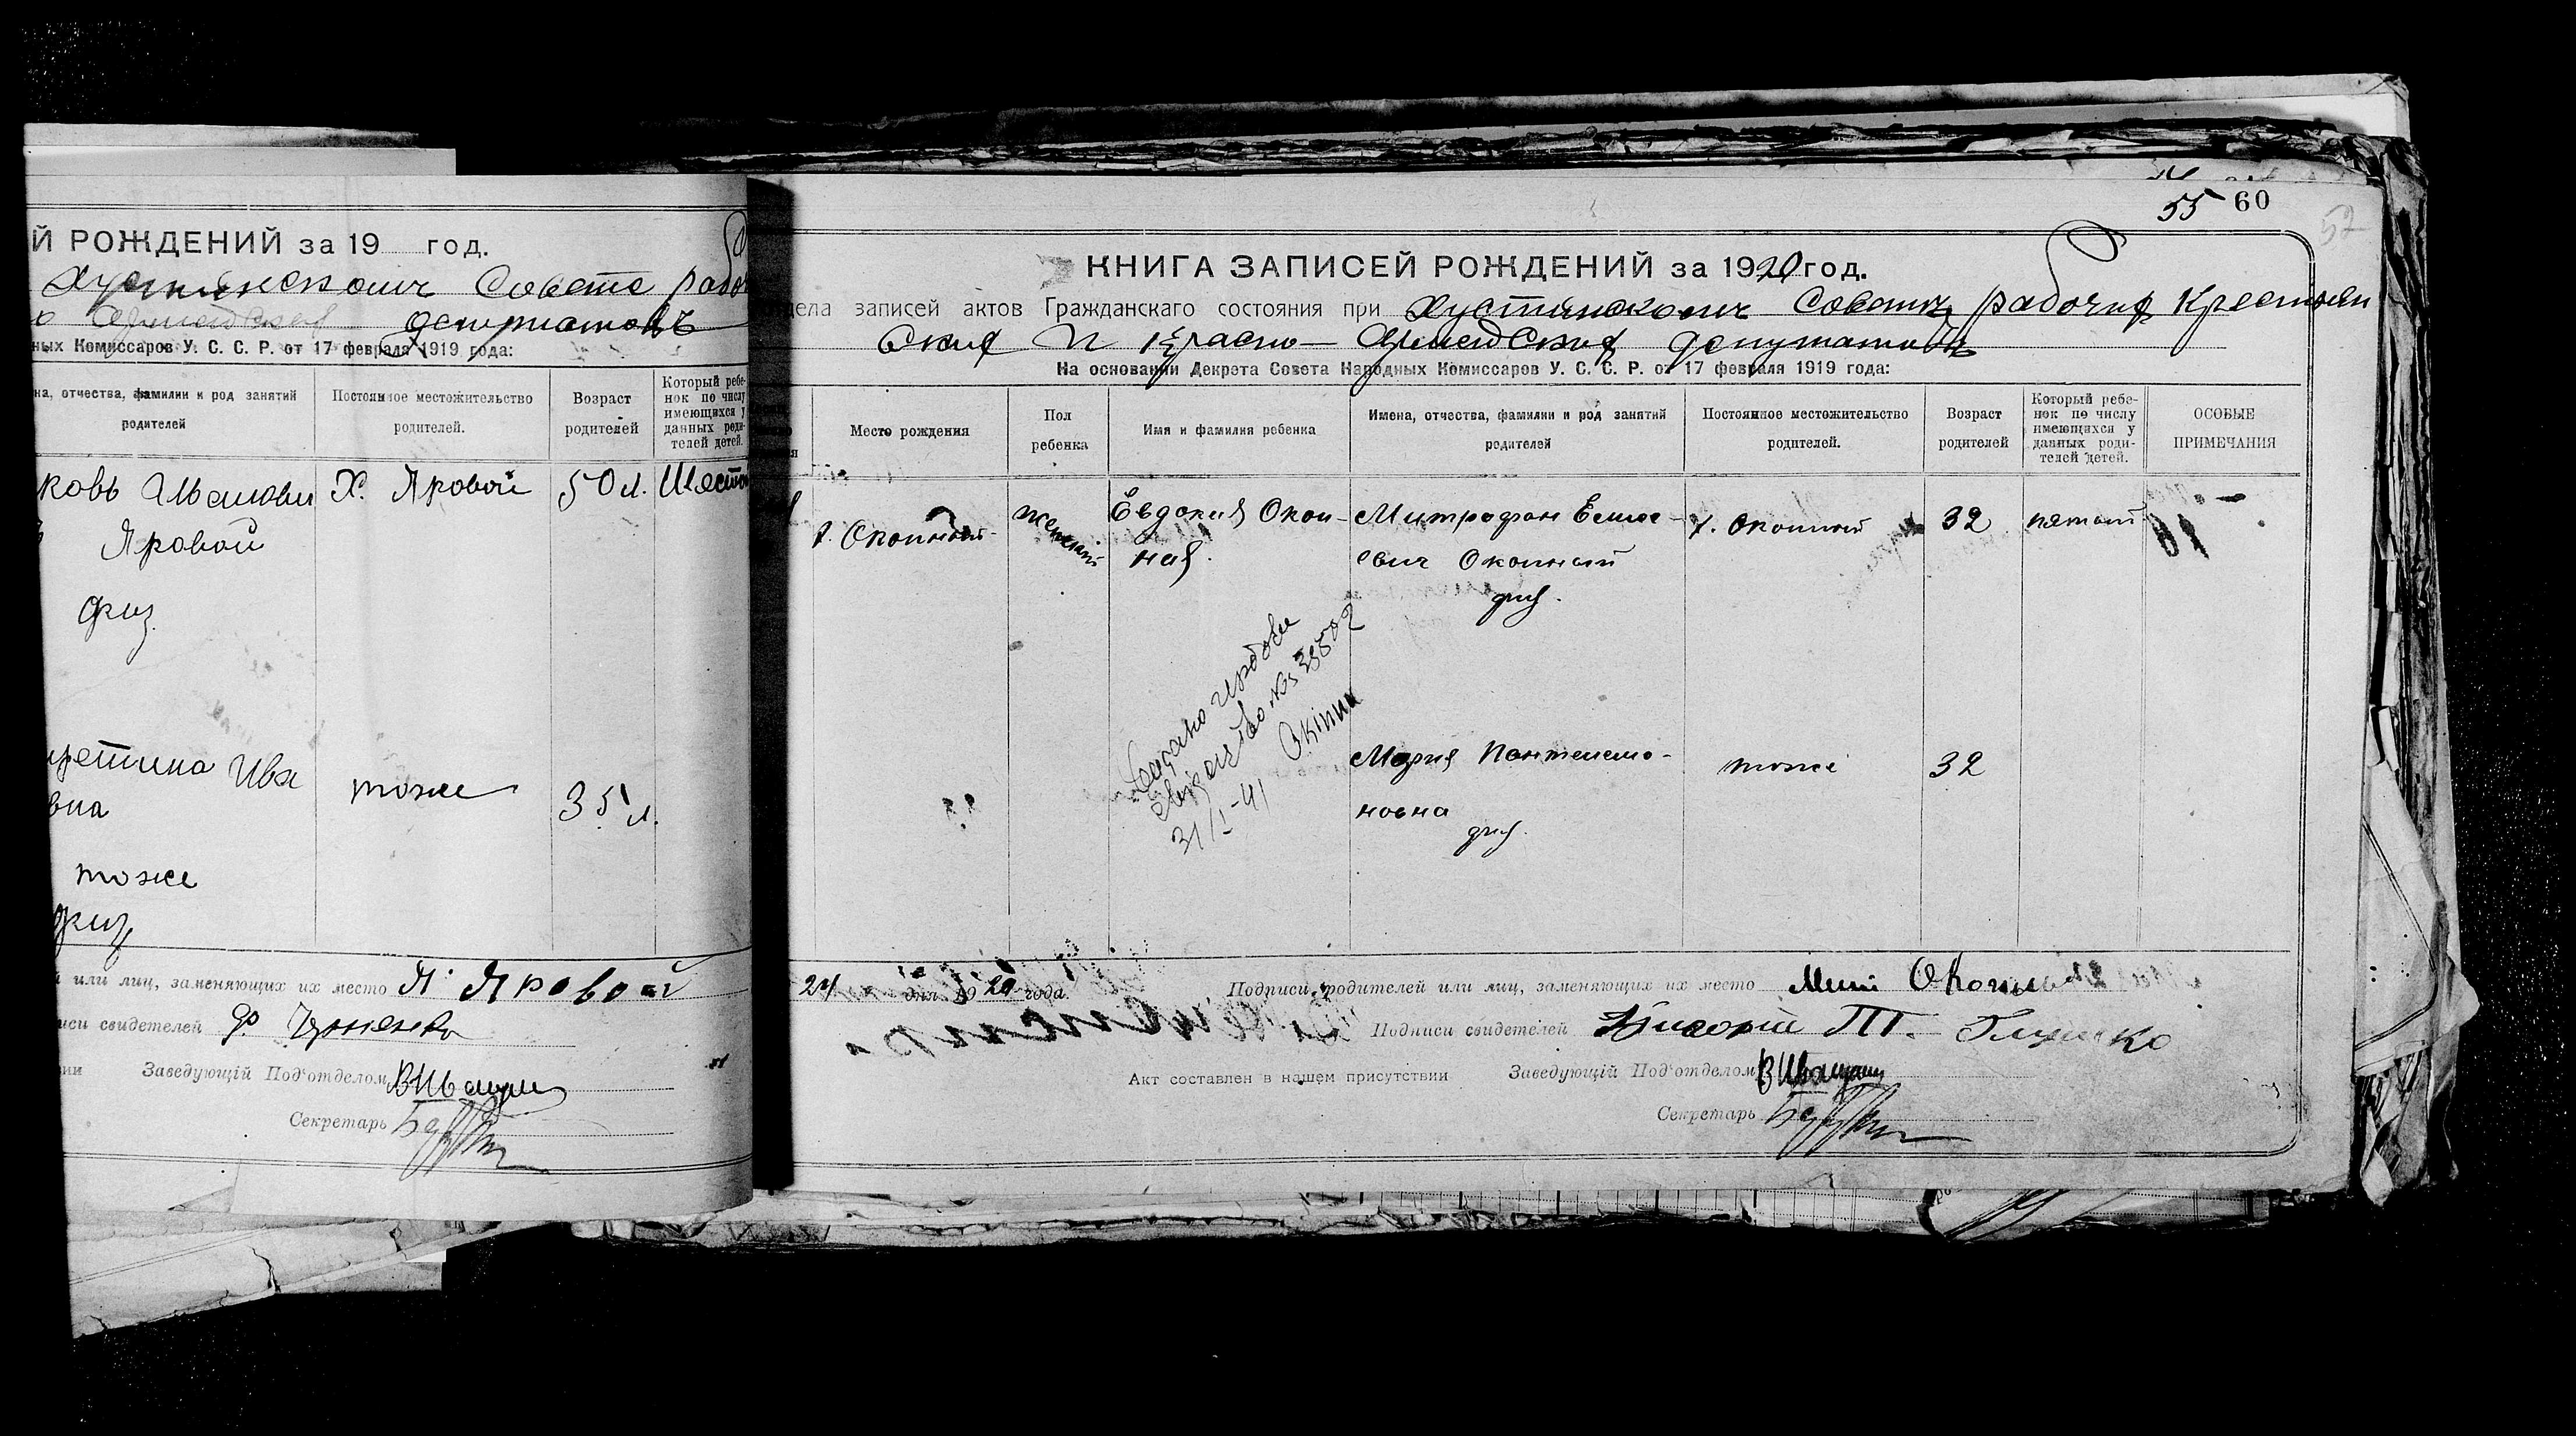 Й РОЖДЕНИЙ за 19 год.
Совете рабо
депутатовъ
ных Комиссаров У. С. С. Р. от 17 февраля 1919 года:
на, отчества, фамилии и род занятий
родителей
Постоянное местожительство
родителей.
Возраст
родителей
Который ребе-
нок по числу
имеющихся у
данных роди-
телей детей.
ковь Иванови
Яровой
Х. Яровой
50 л.
Шесто
Ива
вна
тоже
тоже
35 л.
или лиц, заменяющих их место Я. Яровой
иси свидетелей
Заведующій Под'отделом
Секретарь
55 60
52
КНИГА ЗАПИСЕЙ РОЖДЕНИЙ за 1920 год.
дела записей актов Гражданскаго состояния при Хустянском Совете рабочих Крестьян
ских и Красно-Армейских депутатовъ
На основании Декрета Совета Народных Комиссаров У. С. С. Р. от 17 февраля 1919 года:
Место рождения
Пол
ребенка
Имя и фамилия ребенка
Имена, отчества, фамилии и род занятий
родителей
Постоянное местожительство
родителей.
Возраст
родителей
Который ребе-
нок по числу
имеющихся у
данных роди-
телей детей.
ОСОБЫЕ
ПРИМЕЧАНИЯ
х. Окопный
женский
Евдокия Окоп-
ная.
Митрофан Емель-
евич Окопный
х. Окопный
32
пятый
31/I-41
Мария Пантелемо-
новна
тоже
32
24 дня 1920 года
Подписи родителей или лиц, заменяющих их место
Подписи свидетелей
Акт составлен в нашем присутствии
Заведующій Под'отделом
Секретарь